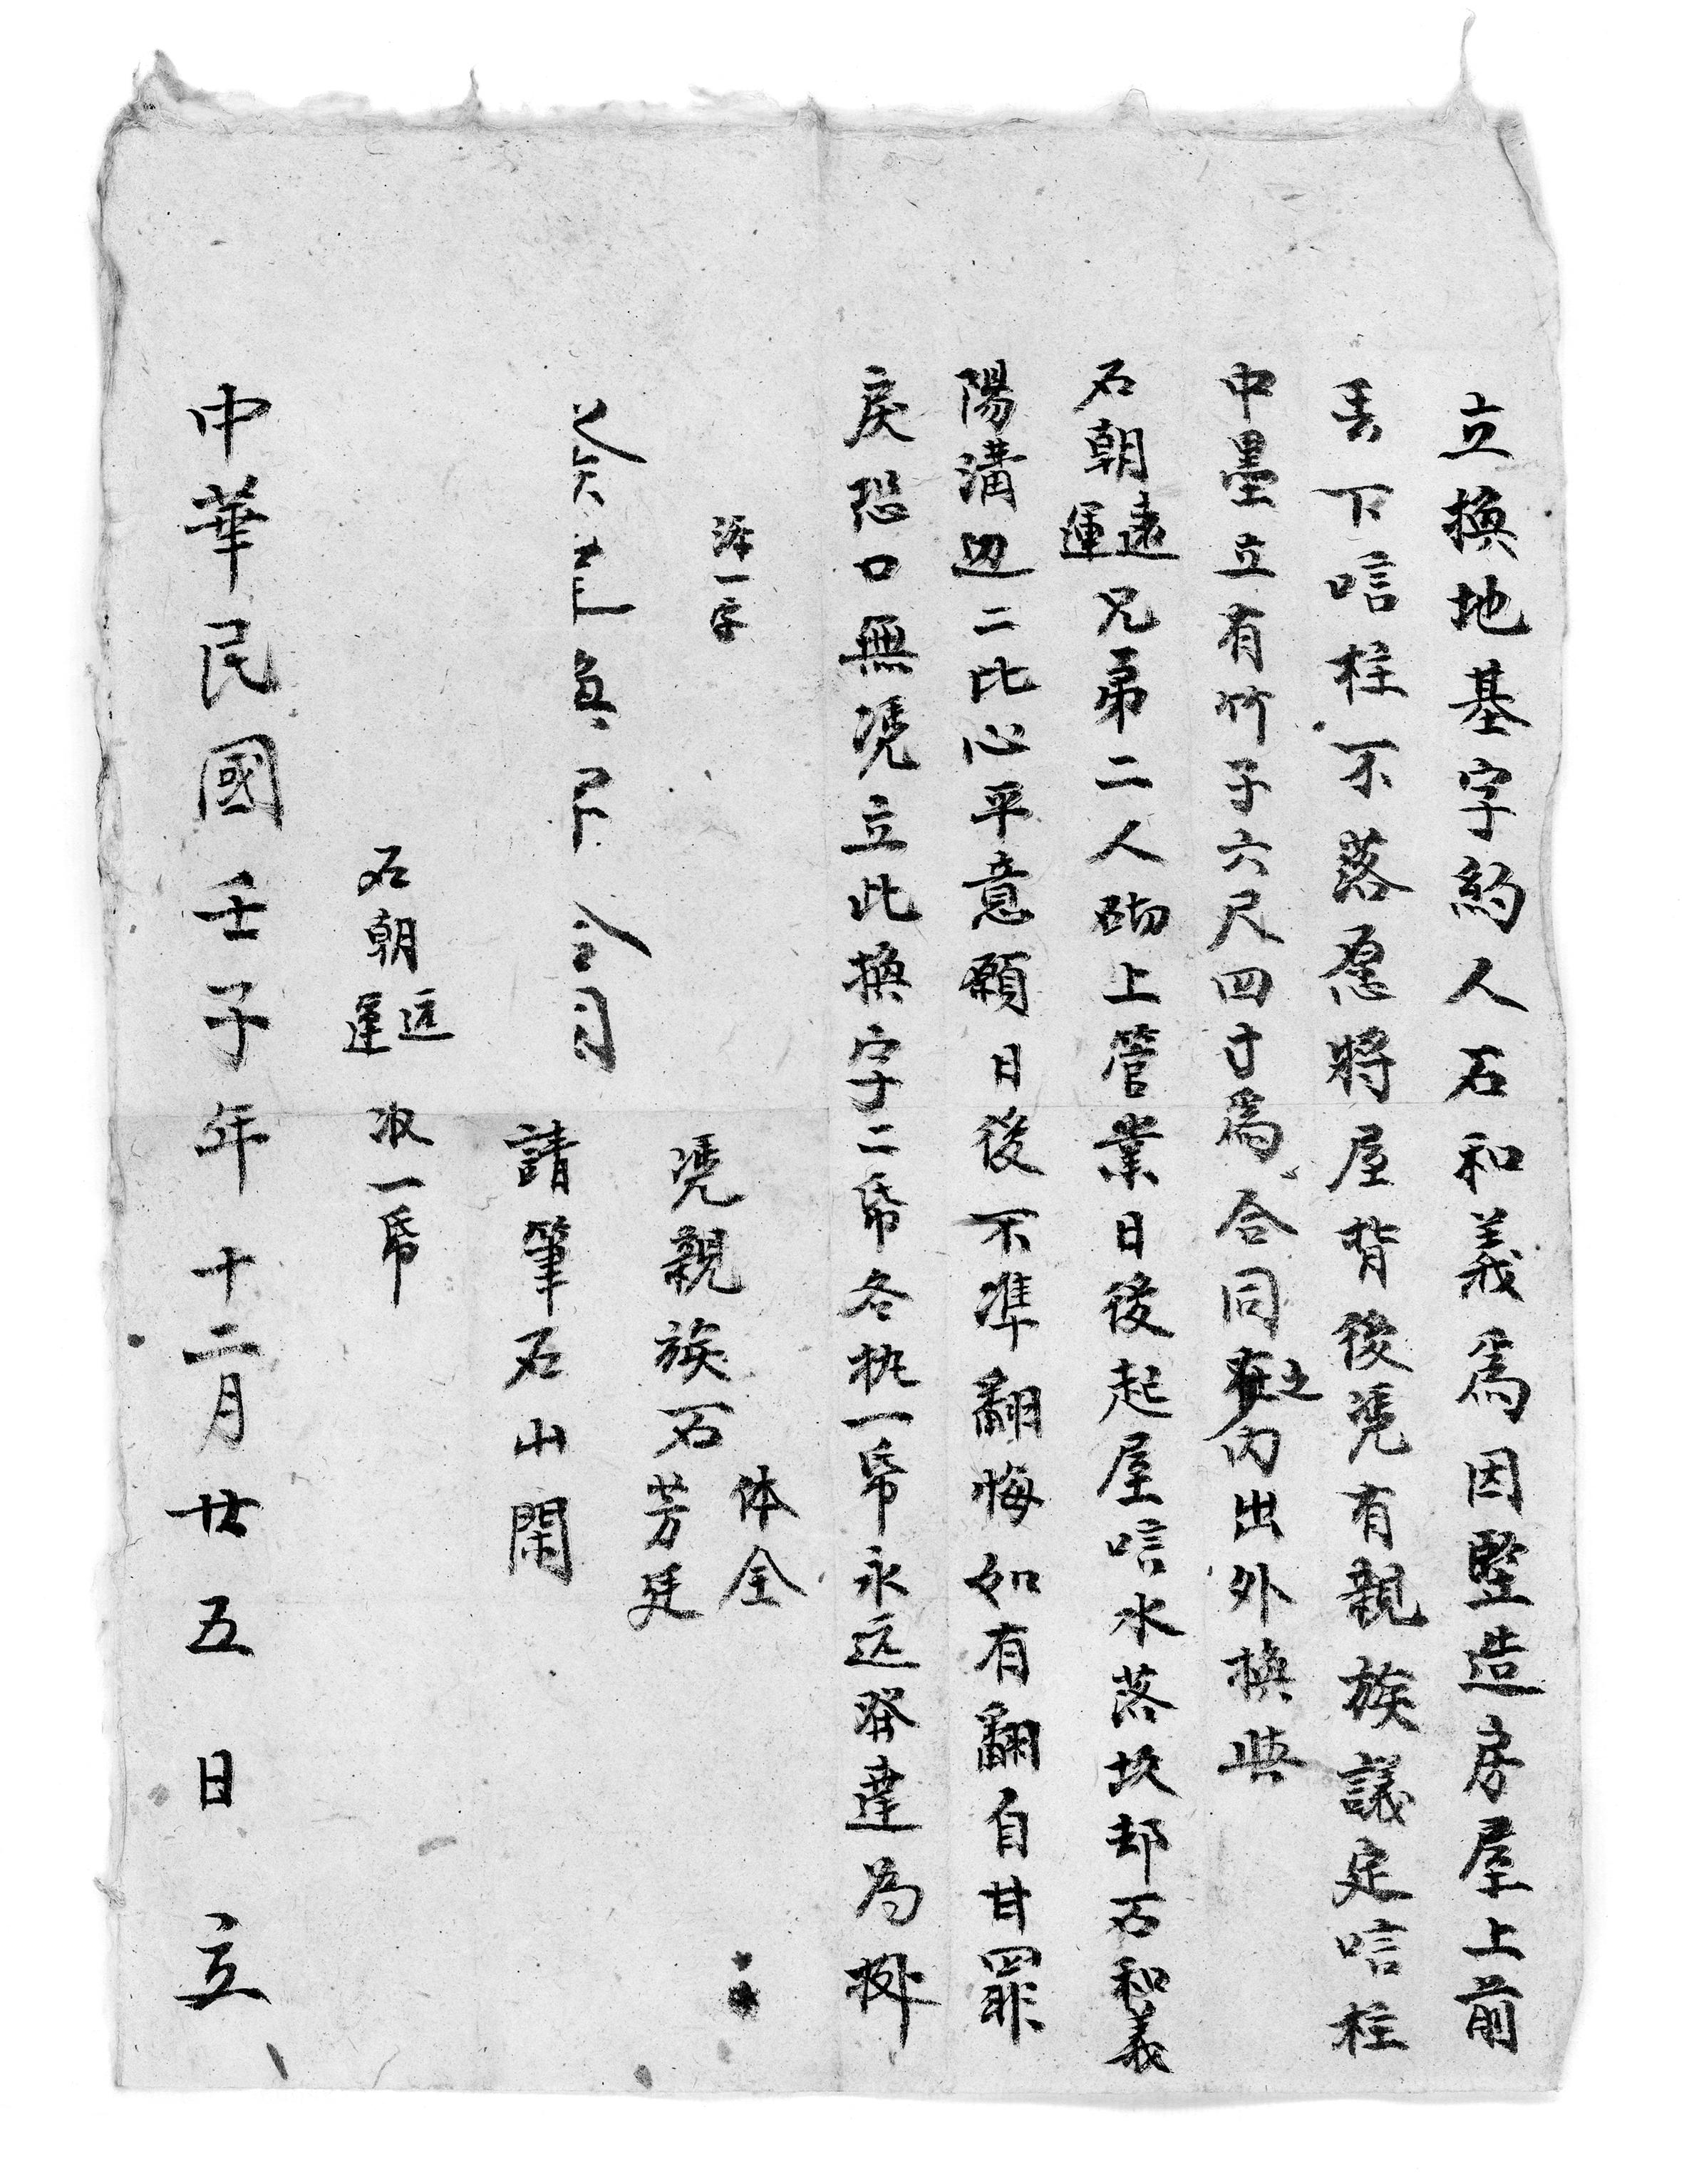 立換地基字約人石和義爲因竪造房屋上前
丟下唁柱不落愿將屋背後凴有親族議定唁柱
中墨立有竹子六尺四寸爲合同之内出外換與
石朝遠運兄弟二人砌上管業日後起屋唁水落坎却石和義
陽溝边二比心平意願日後不準翻悔如有翻自甘罪
戾恐口無凴立此換字二帋各执一帋永远發達为據
添一字
凴親族石体全芳廷
請筆石山閑
石朝远運收一帋
中華民國壬子年十二月廿五日立